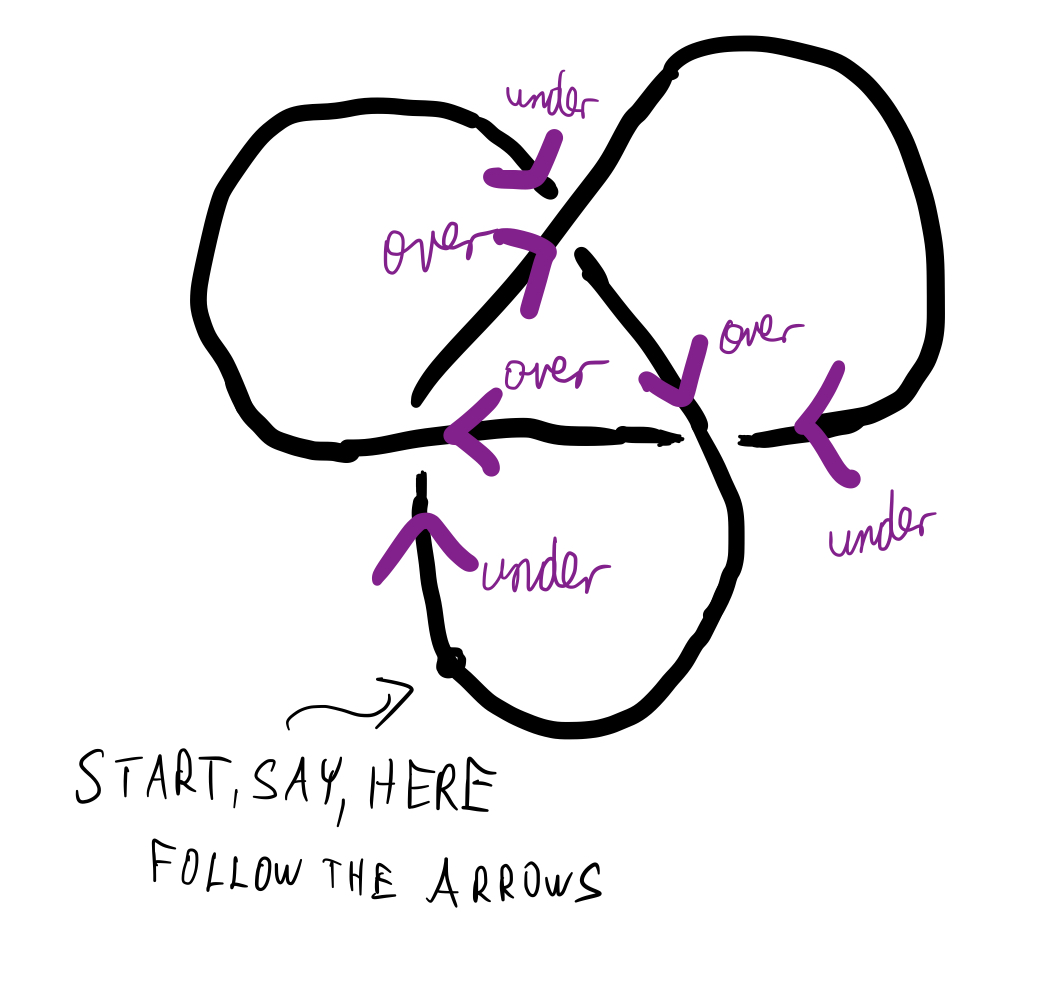 under
over
over
over
under
under
START, SAY, HERE
FOLLOW THE ARROWS